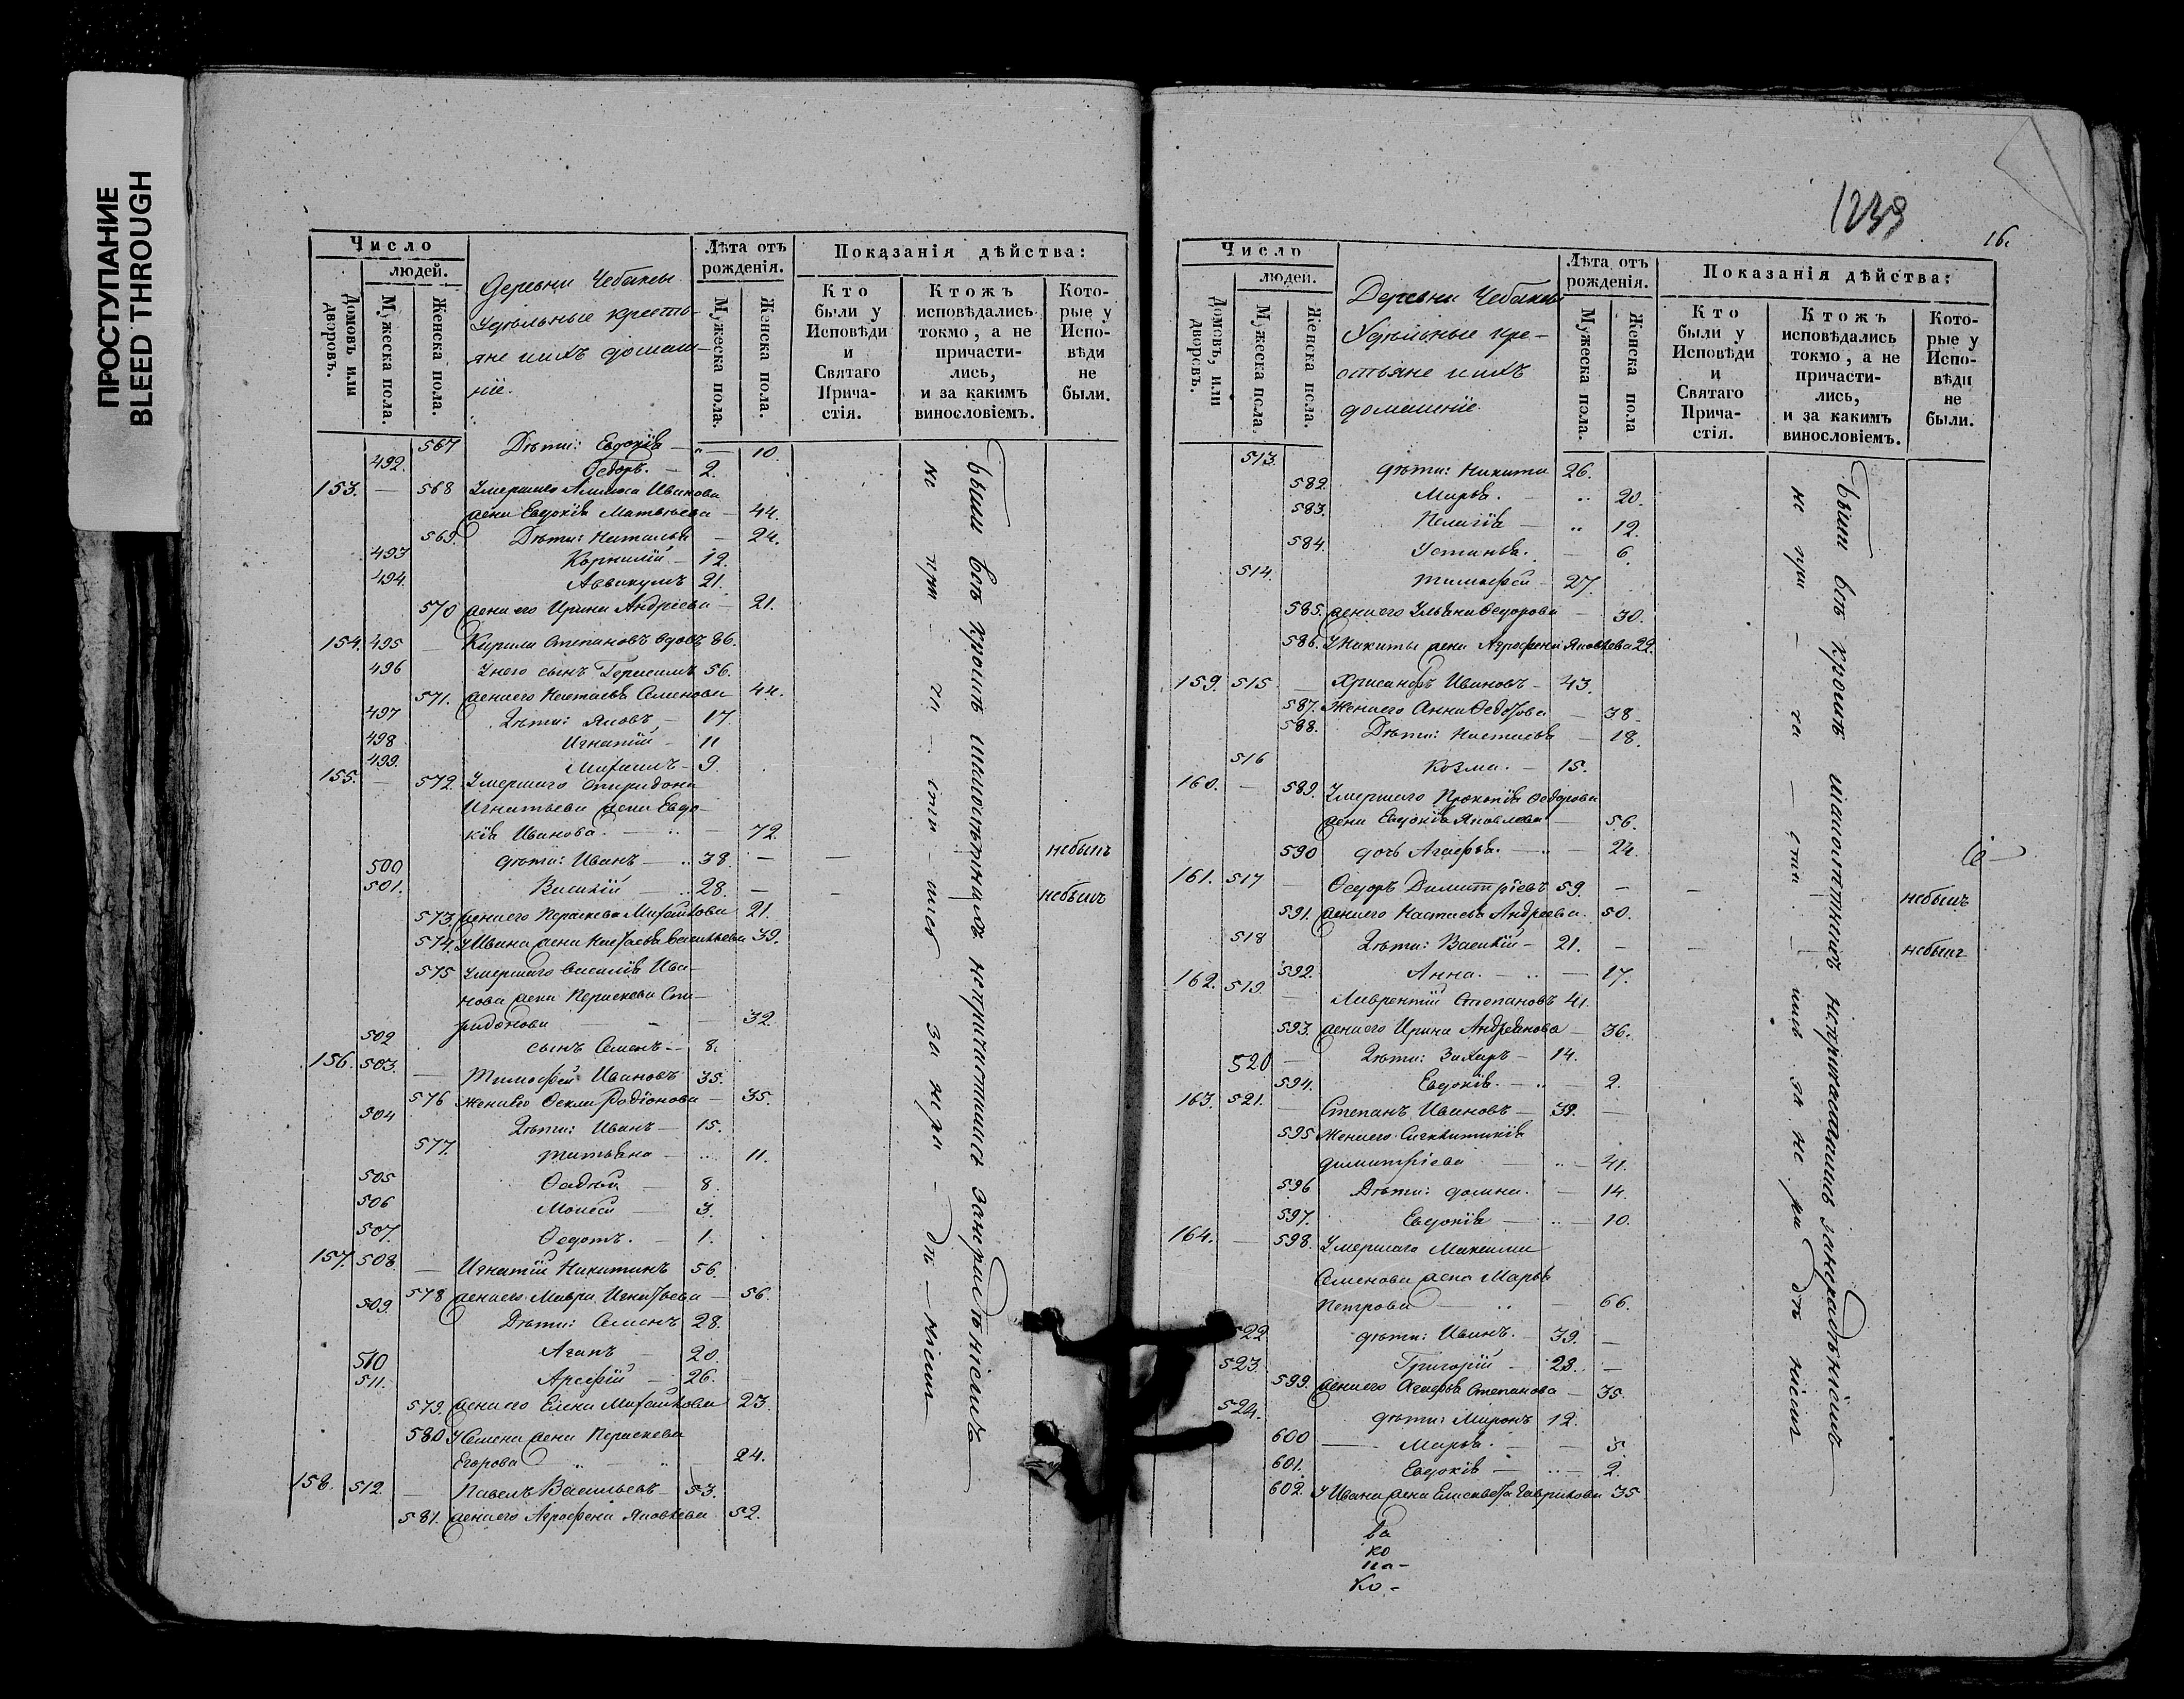 ПРОСТУПАНИЕ
BLEED THROUGH
Число
людей.
Домовъ или дворовъ.
Мужеска пола.
Женска пола.
Деревни Чебаксы
Удѣльные крестья-
яне ихъ домаш-
ніе.
Лѣта отъ рожденія.
Мужеска пола.
Женска пола.
Показанія дѣйства:
Кто были у Исповѣди и Святаго Прича-стія.
Ктожъ исповѣдались токмо, а не причасти-лись, и за какимъ винословіемъ.
Кото-рые у Испо-вѣди не были.
567 Дѣти: Евдокія — 10
492. Ѳедоръ. — 2.
153. — 568 Умершаго Иванова
жена Евдокія Матвѣева — 44.
569. Дѣти: Наталья — 24.
493 Корнилій — 12.
494. Аввакумъ 21.
570 жена его Ирина Андріева — 21.
154. 495 — Кирила Степановъ вдовъ 86.
496 У него сынъ Герасимъ 56.
571. жена его Настасья Семенова 44.
497 Дѣти: Яковъ — 17.
498 Игнатій — 11
499. Михаилъ — 9.
155. — 572. Умершаго Спиридона
Игнатьева жена Евдо-
кія Иванова. — 72.
500 дѣти: Иванъ — 38. — — небылъ
501. Василій — 28. — — небылъ
573. жена его Параскева Михайлова 21.
574. У Ивана жена Настасья Васильева 39.
575 Умершаго Василія Ива-
нова жена Параскева Спи-
ридонова — 32.
502 сынъ Семенъ — 8.
156. 503. — Тимофей Ивановъ 35.
576 Жена его Ѳекла Родіонова — 35.
504 Дѣти: Иванъ — 15.
577. Татьяна — 11.
505 Ѳадѣй — 8.
506 Моисей — 3.
507. Ѳедотъ. — 1.
157. 508. — Игнатій Никитинъ 56.
578 жена его Мавра Игнатьева — 56.
509. Дѣти: Семенъ 28.
510 Агапъ — 20.
511. Арефій — 26.
579. жена его Елена Михайлова 23.
580 У Семена жена Параскева
Егорова — 24.
158. 512. — Павелъ Васильевъ 53.
581. жена его Агрофена Яковлева 52.
Были всѣ кромѣ малолѣтнихъ непричастились за нерадѣніемъ
не при - ча - сти - лись за не ра - дѣ - ніем
1239
16.
Число
людей.
Домовъ, или дворовъ.
Мужеска пола.
Женска пола.
Деревни Чебаксы
Удѣльные кре-
стьяне ихъ
домашніе.
Лѣта отъ рожденія.
Мужеска пола.
Женска пола
Показанія дѣйства:
Кто были у Исповѣди и Святаго Прича-стія.
Ктожъ исповѣдались токмо, а не причасти-лись, и за какимъ винословіемъ.
Кото-рые у Испо-вѣди не были.
513. дѣти: Никита 26.
582. Марья. — 20.
583. Пелагія — 12.
584. Устинья. — 6.
514. Тимофей — 27.
585. жена его Ульяна Ѳедорова — 30.
586. У Никиты жена Агрофена Яковлева 22.
159. 515 — Хрисанфъ Ивановъ — 43.
587. Жена его Анна Ѳедотова — 38.
588. Дѣти: Настасья — 18.
516 Козма. — 15.
160. — 589. Умершаго Прокопія Ѳедорова
жена Евдокія Яковлева — 56.
590 дочь Агафья. — 24.
161. 517 — Ѳедоръ Димитріевъ 59. — — небылъ
591. жена его Настасья Андреева. 50.
518 Дѣти: Василій — 21. — — небылъ
592. Анна. — 17.
162. 519. — Лаврентій Степановъ 41.
593. жена его Ирина Андреянова — 36.
520 — Дѣти: Захаръ — 14.
594. Евдокія. — 2.
163. 521. — Степанъ Ивановъ — 39. —
595 Жена его
Димитріева — 41.
596 Дѣти: Домна. — 14.
597. Евдокія — 10.
164. — 598. Умершаго Максима
Семенова жена Марья
Петрова — 66.
522 дѣти: Иванъ. — 39. —
523. Григорій — 28. —
599. жена его Агафья Степанова — 35.
524. дѣти: Миронъ 12.
600 — Марья. — 5
601. Евдокія — 2.
602. У Ивана жена Елисавета Гаврилова 35
ва
ко
на-
ко-
Были всѣ кромѣ малолѣтнихъ непричащались за нерадѣніемъ
не при - ча - сти - лись за не ра дѣ ніем